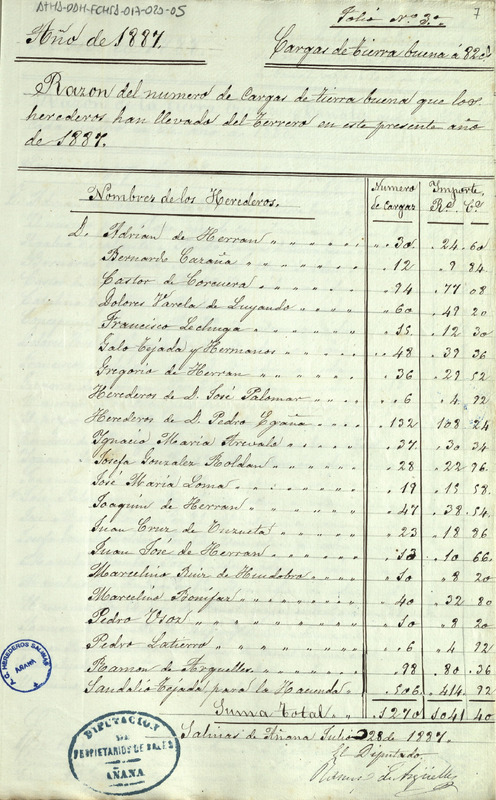 ATHA-DAH-FCHSA-017-020-05
Folio Nº 3º
7
Año de 1887.
Cargas de tierra buena á 82 cs
Razon del numero de Cargas de tierra buena que los
herederos han llevado del Terrero en este presente año
de 1887.
Nombres de los Herederos. Numero de Cargas Importe Rs. Cs.
D. Adrian de Herran 30 24 60
Bernardo Cazaña 12 9 84
Castor de Corquera 94 77 08
Dolores Varela de Luyando 60 49 20
Francisco Lechuga 15 12 30
Galo Tejada y Hermanos 48 39 36
Gregorio de Herran 36 29 52
Herederos de D. José Palomar 6 4 92
Herederos de D. Pedro Egaña 132 108 24
Ygnacio Maria Arevalo 37 30 34
Josefa Gonzalez Roldan 28 22 96
José Maria Loma 19 15 58
Joaquin de Herran 47 38 54
Juan Cruz de Unzueta 23 18 86
Juan José de Herran 13 10 66
Marcelino Ruiz de Hendobro 10 8 20
Marcelino Bonifaz 40 32 80
Pedro Usoz 10 8 20
Pedro Latierro 6 4 92
Ramon de Arguelles 98 80 36
Sandalio Tejada para la Hacienda 506 414 92
Suma Total 1270 1041 40
Salinas de Añana Julio 28 de 1887.
El Diputado
Ramon de Arguelles
A.C. HEREDEROS SALINAS
AÑANA
DIPUTACION
DE
PROPIETARIOS DE SALES
AÑANA